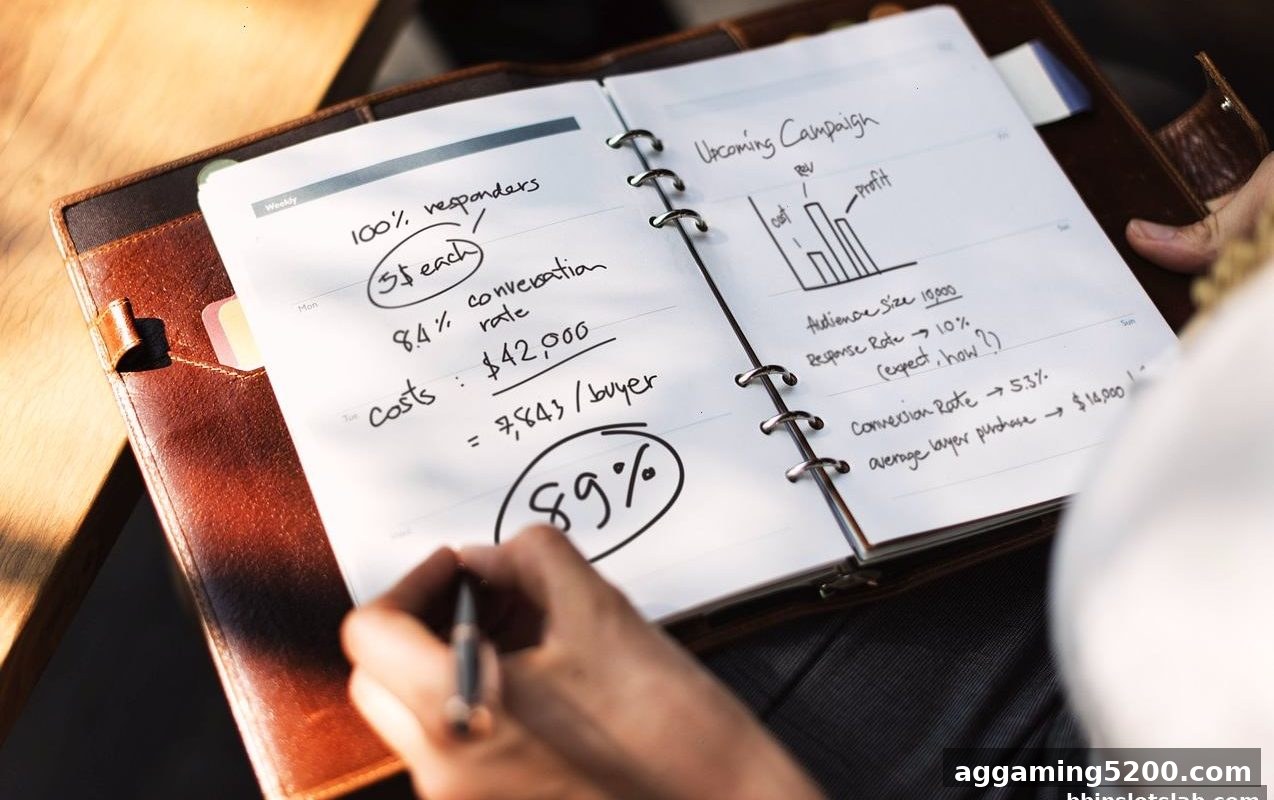 Weekly
100% responders
5$ each
8.4% conversation
rate
costs : $42,000
= 7,843 /buyer
89%
Mon
Tue
Upcoming Campaign
Rev
cost
profit
Audience Size 10,000
Response Rate → 10%
(expect, how?)
Conversion Rate → 5.3%
average buyer purchase → $14,000
Fri
Sat
Sun
aggaming5200.com